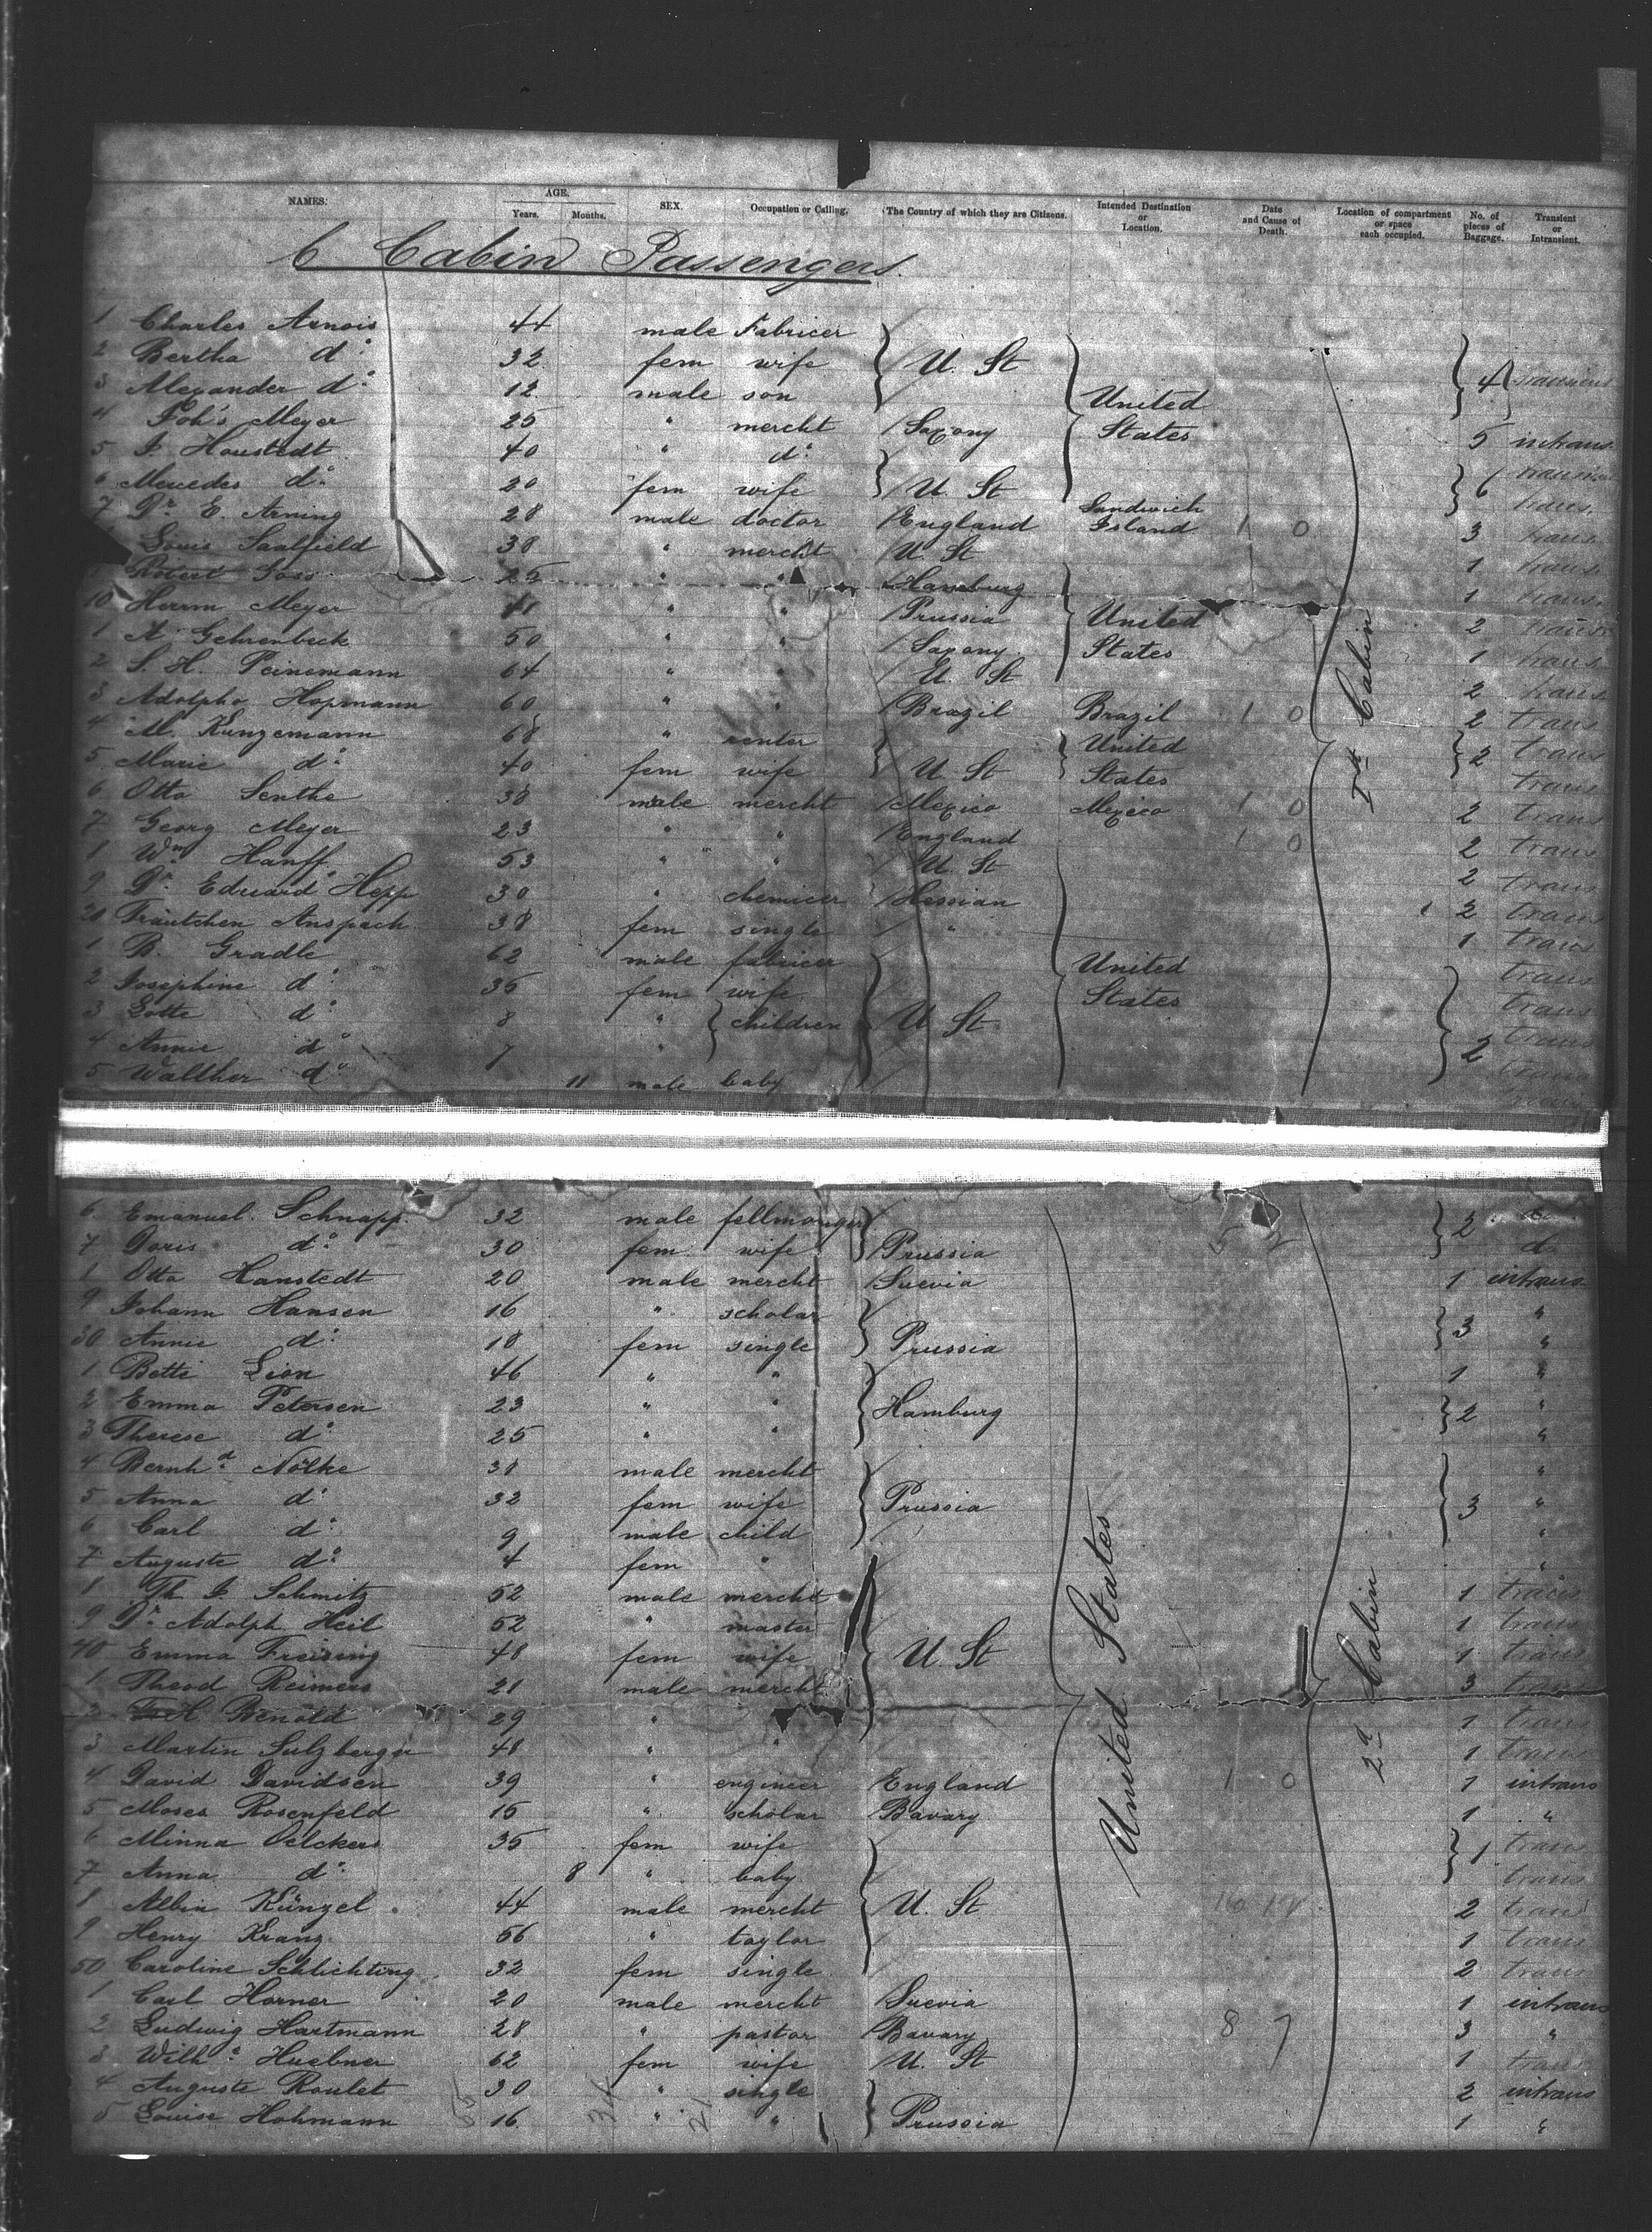 NAMES. AGE. SEX. Occupation or Calling. The Country of which they are Citizens. Intended Destination or Location. Date and Cause of Death. Location of compartment or space each occupied. No. of pieces of Baggage. Transient or Intransient.
Years. Months.
6 Cabin Passengers.
1 Charles Arnois 44 male Fabricer
2 Bertha do 32 fem wife U. St
3 Alexander do 12 male son United 4
4 Joh's Meyer 25 " mercht Saxony States 5 intrans
5 J. Houstedt 40 " do
6 Mercedes do 20 fem wife U. St 6 trans.
7 Dr E. Arning 28 male doctor England Sandwich Island 1 0 3 trans
Louis Saalfield 38 " mercht U. St 1 trans.
Robert 25 " " Hamburg 1 trans.
10 Herrm Meyer 41 " " Prussia United 2 trans
1 A. Gehrenbeck 50 " " Saxony States 1 trans
2 S. H. Peinemann 64 " " U. St 2 trans
3 Adolpho Hopmann 60 " " Brazil Brazil 1 0 2 trans
4 M. Kunzemann 68 " renter United 2 trans
5 Marie do 40 fem wife U. St States trans
6 Otto Senthe 38 male mercht Mexico Mexico 1 0 2 trans
7 Georg Meyer 23 " " England 1 0 2 trans
8 Wm Hanff 53 " " U. St 2 trans
9 Dr. Eduard Hepp 30 " chemicer Hessian 2 trans
20 Träutchen Anspach 38 fem single " 1 trans
1 B. Gradle 62 male fabricer United trans
2 Josephine do 35 fem wife States trans
3 Lotte do 8 " children U St trans
4 Annie do 7 " 2 trans
5 Walther do 11 male baby
1st Cabin
6 Emanuel Schnapp 32 male fellmonger 2 do
7 Doris do 30 fem wife Prussia do
8 Otto Hanstedt 20 male mercht Suevia 1 intrans
9 Johann Hansen 16 " scholar "
30 Annie do 18 fem single Prussia 3 "
1 Betti Lion 46 " " 1 "
2 Emma Petersen 23 " " Hamburg 2 "
3 Therese do 25 " " "
4 Bernhd Nölke 38 male mercht "
5 Anna do 32 fem wife Prussia 3 "
6 Carl do 9 male child "
7 Auguste do 4 fem " "
8 Th. J. Schmitz 52 male mercht 1 trans
9 Dr Adolph Heil 52 " master 1 trans
40 Emma Freising 48 fem wife U. St 1 trans
1 Theod Reimers 21 male mercht 3 trans
2 H. Benoldt 29 " 1 trans
3 Martin Sulzberger 48 " " 1 trans
4 David Davidsen 39 " engineer England 1 0 1 intrans
5 Moses Rosenfeld 15 " scholar Bavary 1 "
6 Minna Oelckers 35 fem wife 1 trans
7 Anna do 8 " baby trans
8 Albin Künzel 44 male mercht U. St 2 trans
9 Henry Kranz 56 " taylor 1 trans
50 Caroline Schlichting 32 fem single 2 trans
1 Carl Horner 20 male mercht Suevia 1 intrans
2 Ludwig Hartmann 28 " pastor Bavary 8 7 3 "
3 Wilhe Huebner 62 fem wife U. St 1 trans
4 Auguste Roulet 30 " single 2 intrans
5 Louise Hohmann 16 " " Prussia 1 "
United States
2d Cabin